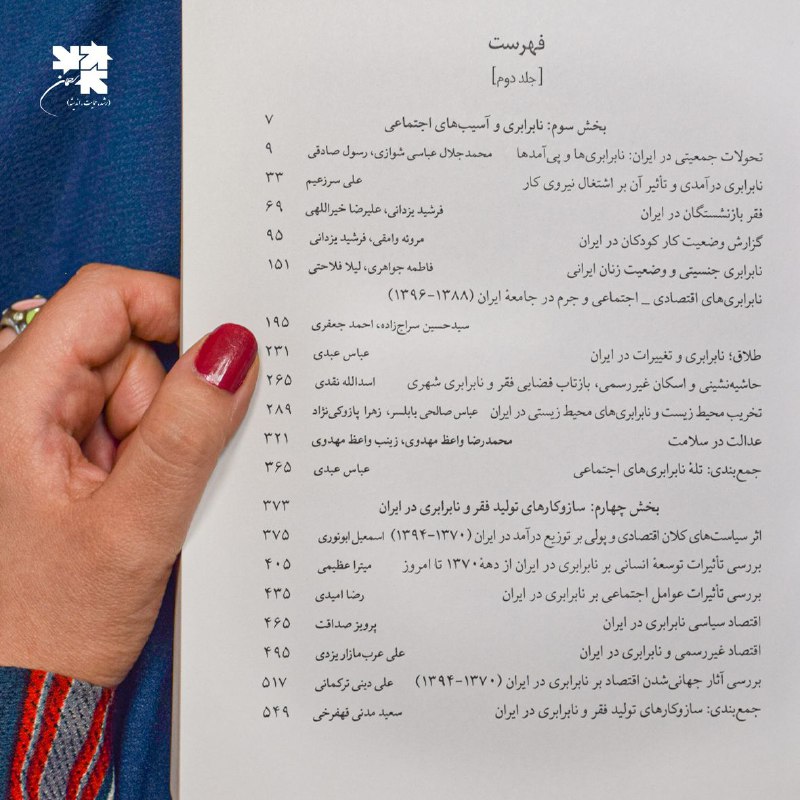 (رشد، حمایت، اندیشه)
فهرست
[جلد دوم]
بخش سوم: نابرابری و آسیب‌های اجتماعی ۷
تحولات جمعیتی در ایران: نابرابری‌ها و پی‌آمدها محمدجلال عباسی شوازی، رسول صادقی ۹
نابرابری درآمدی و تأثیر آن بر اشتغال نیروی کار علی سرزعیم ۳۳
فقر بازنشستگان در ایران فرشید یزدانی، علیرضا خیراللهی ۶۹
گزارش وضعیت کار کودکان در ایران مروئه وامقی، فرشید یزدانی ۹۵
نابرابری جنسیتی و وضعیت زنان ایرانی فاطمه جواهری، لیلا فلاحتی ۱۵۱
نابرابری‌های اقتصادی _ اجتماعی و جرم در جامعهٔ ایران (۱۳۸۸-۱۳۹۶)
سیدحسین سراج‌زاده، احمد جعفری ۱۹۵
طلاق؛ نابرابری و تغییرات در ایران عباس عبدی ۲۳۱
حاشیه‌نشینی و اسکان غیررسمی، بازتاب فضایی فقر و نابرابری شهری اسدالله نقدی ۲۶۵
تخریب محیط زیست و نابرابری‌های محیط زیستی در ایران عباس صالحی بابلسر، زهرا پازوکی‌نژاد ۲۸۹
عدالت در سلامت محمدرضا واعظ مهدوی، زینب واعظ مهدوی ۳۲۱
جمع‌بندی: تلهٔ نابرابری‌های اجتماعی عباس عبدی ۳۶۵
بخش چهارم: سازوکارهای تولید فقر و نابرابری در ایران ۳۷۳
اثر سیاست‌های کلان اقتصادی و پولی بر توزیع درآمد در ایران (۱۳۷۰-۱۳۹۴) اسمعیل ابونوری ۳۷۵
بررسی تأثیرات توسعهٔ انسانی بر نابرابری در ایران از دههٔ ۱۳۷۰ تا امروز میترا عظیمی ۴۰۵
بررسی تأثیرات عوامل اجتماعی بر نابرابری در ایران رضا امیدی ۴۳۵
اقتصاد سیاسی نابرابری در ایران پرویز صداقت ۴۶۵
اقتصاد غیررسمی و نابرابری در ایران علی عرب‌مازار یزدی ۴۹۵
بررسی آثار جهانی‌شدن اقتصاد بر نابرابری در ایران (۱۳۷۰-۱۳۹۴) علی دینی ترکمانی ۵۱۷
جمع‌بندی: سازوکارهای تولید فقر و نابرابری در ایران سعید مدنی قهفرخی ۵۴۹